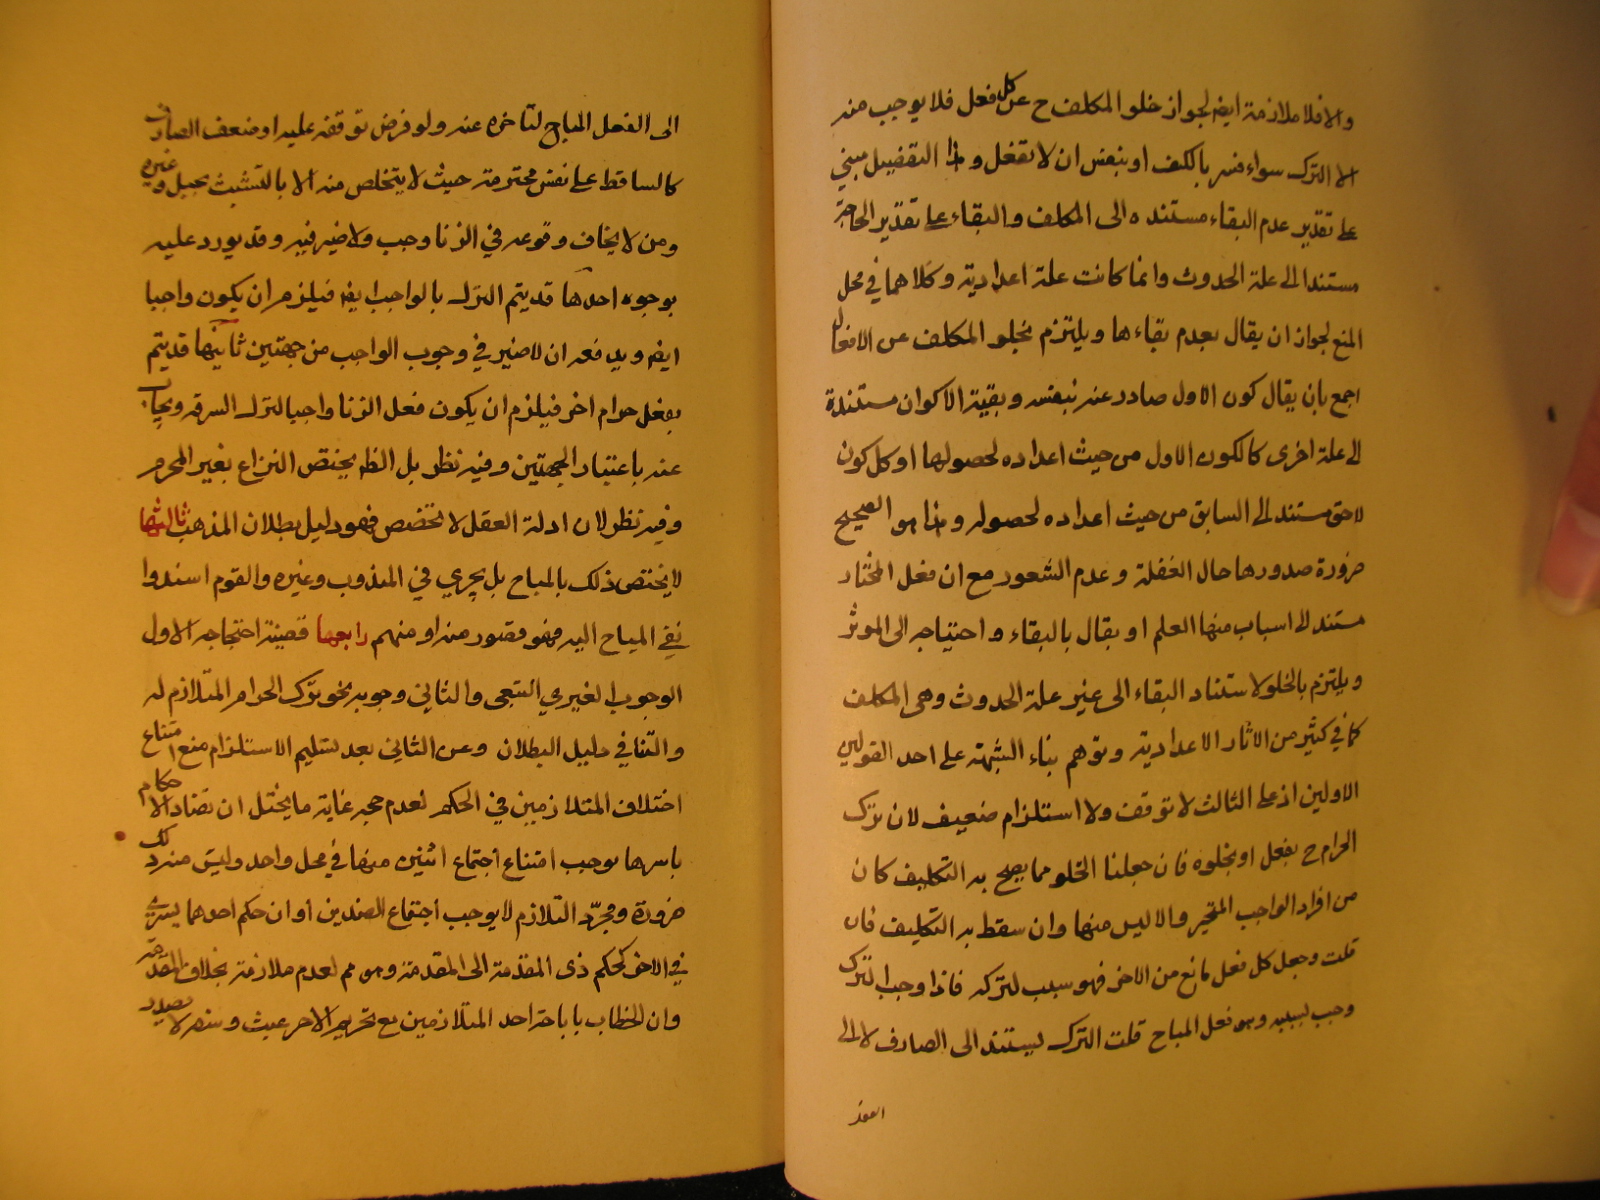 والا فلا ملازمة ايضه لجواز خلو المكلف ح عن كل فعل فلا يوجب منه
الا الترك سواء فسر بالكف او بنفس ان لا تفعل وهذا التفصيل مبني
على تقدير عدم البقاء مستنده الى المكلف والبقاء على تقدير الحاجة
مستندا الى علة الحدوث وانما كانت علة اعدادية وكلاهما في محل
المنع لجواز ان يقال بعدم بقاءها ويلتزم بخلو المكلف عن الافعال
اجمع بان يقال كون الاول صادر عنه بنفسه وبقية الاكوان مستندة
الى علة اخرى كالكون الاول من حيث اعداده لحصولها او كل كون
لاحق مستند الى السابق من حيث اعداده لحصوله وهذا هو الصحيح
ضرورة صدورها حال الغفلة وعدم الشعور مع ان فعل المختار
مستند الى اسباب منها العلم او يقال بالبقاء واحتياجه الى الموثر
ويلتزم بالخلو لاستناد البقاء الى غير علة الحدوث وهى المكلف
كما في كثير من الاثار الاعدادية وتوهم بناء الشبهة على احد القولين
الاولين اذ على الثالث لا توقف ولا استلزام ضعيف لان ترك
الحرام ح بفعل او بخلوه فان جعلنا الخلو مما يصح به التكليف كان
من افراد الواجب المخير والا ليس منها وان سقط به التكليف فان
قلت وجعل كل فعل مانع من الاخر فهو سبب لتركه فاذا وجب الترك
وجب لسببه وهو فعل المباح قلت الترك يستند الى الصارف لا الى
الفعل
الى الفعل المباح لتأخره عنه ولو فرض توقفه عليه او ضعف الصارف
كالساقط على نفس محترمة حيث لا يتخلص منه الا بالتشبث بحبل وغيره
ومن لا يخاف وقوعه في الزنا وجب ولا ضير فيه وقد يورد عليه
بوجوه احدها قد يتم الترك بالواجب ايضه فيلزم ان يكون واجبا
ايضه ويدفعه ان لا ضير في وجوب الواجب من جهتين ثانيها قد يتم
بفعل حرام اخر فيلزم ان يكون فعل الزنا واجبا لترك السرقه ويجاب
عنه باعتبار الجهتين وفيه نظر بل الظه يختص النزاع بغير المحرم
وفيه نظر لان ادلة العقل لا تخصص فهو دليل بطلان المذهب ثالثها
لا يختص ذلك بالمباح بل يجري في المندوب وغيره والقوم اسندوا
نفي المباح اليه فهو قصور منه او منهم رابعها قضية احتجاجه الاول
الوجوب الغيري التبعى والثاني وجوبه بنحو ترك الحرام المتلازم له
والتنافي دليل البطلان وعن الثاني بعد تسليم الاستلزام منع امتناع
اختلاف المتلازمين في الحكم لعدم حجه غاية ما يختل ان تضاد الاحكام
باسرها يوجب امتناع اجتماع اثنين منها في محل واحد وليس منه ذلك
ضرورة ومجرّد التلازم لا يوجب اجتماع الضدين او ان حكم احدهما يسري
في الاخر كحكم ذى المقدمة الى المقدمة وهو مم لعدم ملازمة بخلاف المقدمة
وان الخطاب باباحة احد المتلازمين مع تحريم الاخر عبث وسفه لا يصدر